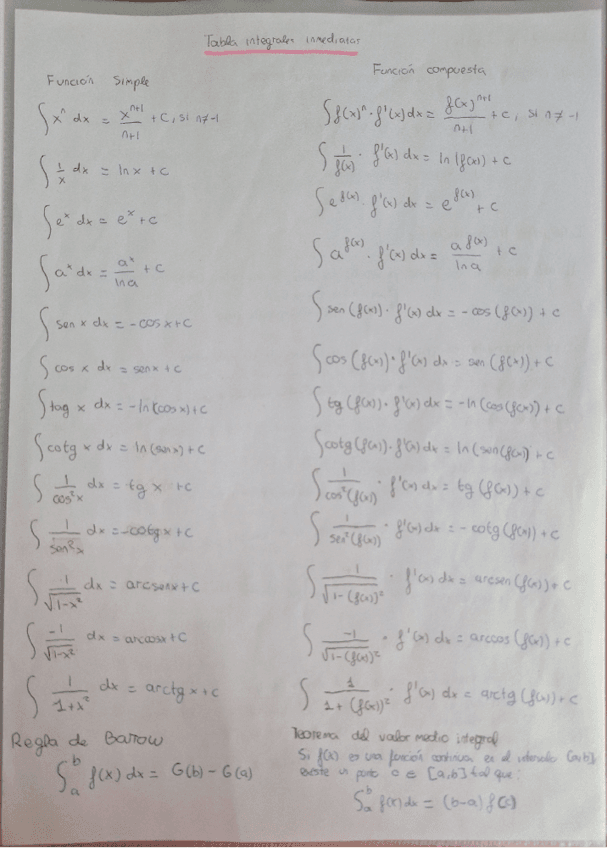 Tabla integrales inmediatas
Función Simple
∫ xⁿ dx = xⁿ⁺¹/n+1 + C, si n≠-1
∫ 1/x dx = ln x + C
∫ eˣ dx = eˣ + C
∫ aˣ dx = aˣ/ln a + C
∫ sen x dx = -cos x + C
∫ cos x dx = sen x + C
∫ tag x dx = -ln (cos x) + C
∫ cotg x dx = ln (sen x) + C
∫ 1/cos²x dx = tg x + C
∫ 1/sen²x dx = -cotg x + C
∫ 1/√1-x² dx = arcsen x + C
∫ -1/√1-x² dx = arccos x + C
∫ 1/1+x² dx = arctg x + C
Regla de Barrow
∫ₐᵇ f(x) dx = G(b) - G(a)
Función compuesta
∫ f(x)ⁿ · f'(x) dx = f(x)ⁿ⁺¹/n+1 + C, si n≠-1
∫ 1/f(x) · f'(x) dx = ln (f(x)) + C
∫ e^f(x) · f'(x) dx = e^f(x) + C
∫ a^f(x) · f'(x) dx = a^f(x)/ln a + C
∫ sen (f(x)) · f'(x) dx = -cos (f(x)) + C
∫ cos (f(x)) · f'(x) dx = sen (f(x)) + C
∫ tg (f(x)) · f'(x) dx = -ln (cos (f(x)) + C
∫ cotg (f(x)) · f'(x) dx = ln (sen(f(x)) + C
∫ 1/cos²(f(x)) · f'(x) dx = tg (f(x)) + C
∫ 1/sen²(f(x)) · f'(x) dx = -cotg (f(x)) + C
∫ 1/√1-(f(x))² · f'(x) dx = arcsen (f(x)) + C
∫ -1/√1-(f(x))² · f'(x) dx = arccos (f(x)) + C
∫ 1/1+(f(x))² · f'(x) dx = arctg (f(x)) + C
Teorema del valor medio integral
Si f(x) es una función continua en el intervalo [a,b]
existe un punto c ∈ [a,b] tal que:
∫ₐᵇ f(x) dx = (b-a) f(c)